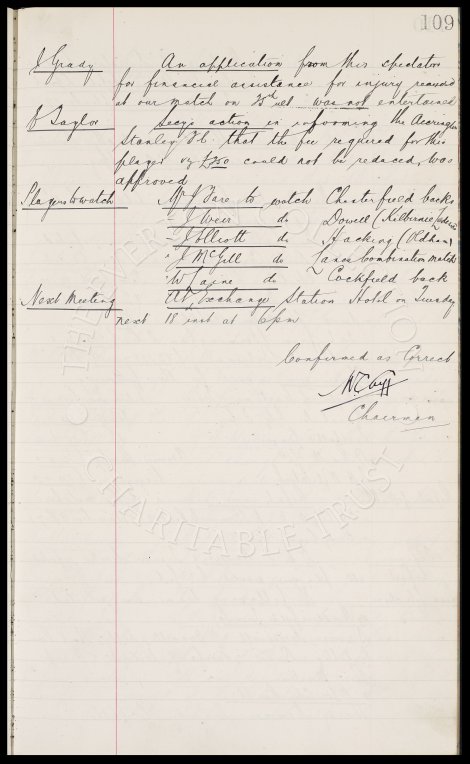 109
J Grady An application from this spectator
for financial assistance for injury received
at our match on 23rd ult was not entertained
J Taylor Secy's action in informing the Accrington
Stanley F.C. that the fee required for this
player viz £300 could not be reduced, was
approved
Players to watch Mr J Bare to watch Chesterfield backs
" J Weir do Dowell (Kilbirnie
" J Elliott do Hacking (Oldham)
" J McGill do Lancs Combination match
" W Layne do Cockfield back
Next Meeting At Exchange Station Hotel on Tuesday
next 18 inst at 6pm
Confirmed as Correct
W C Cuff
Chairman
© THE EVERTON COLLECTION
CHARITABLE TRUST